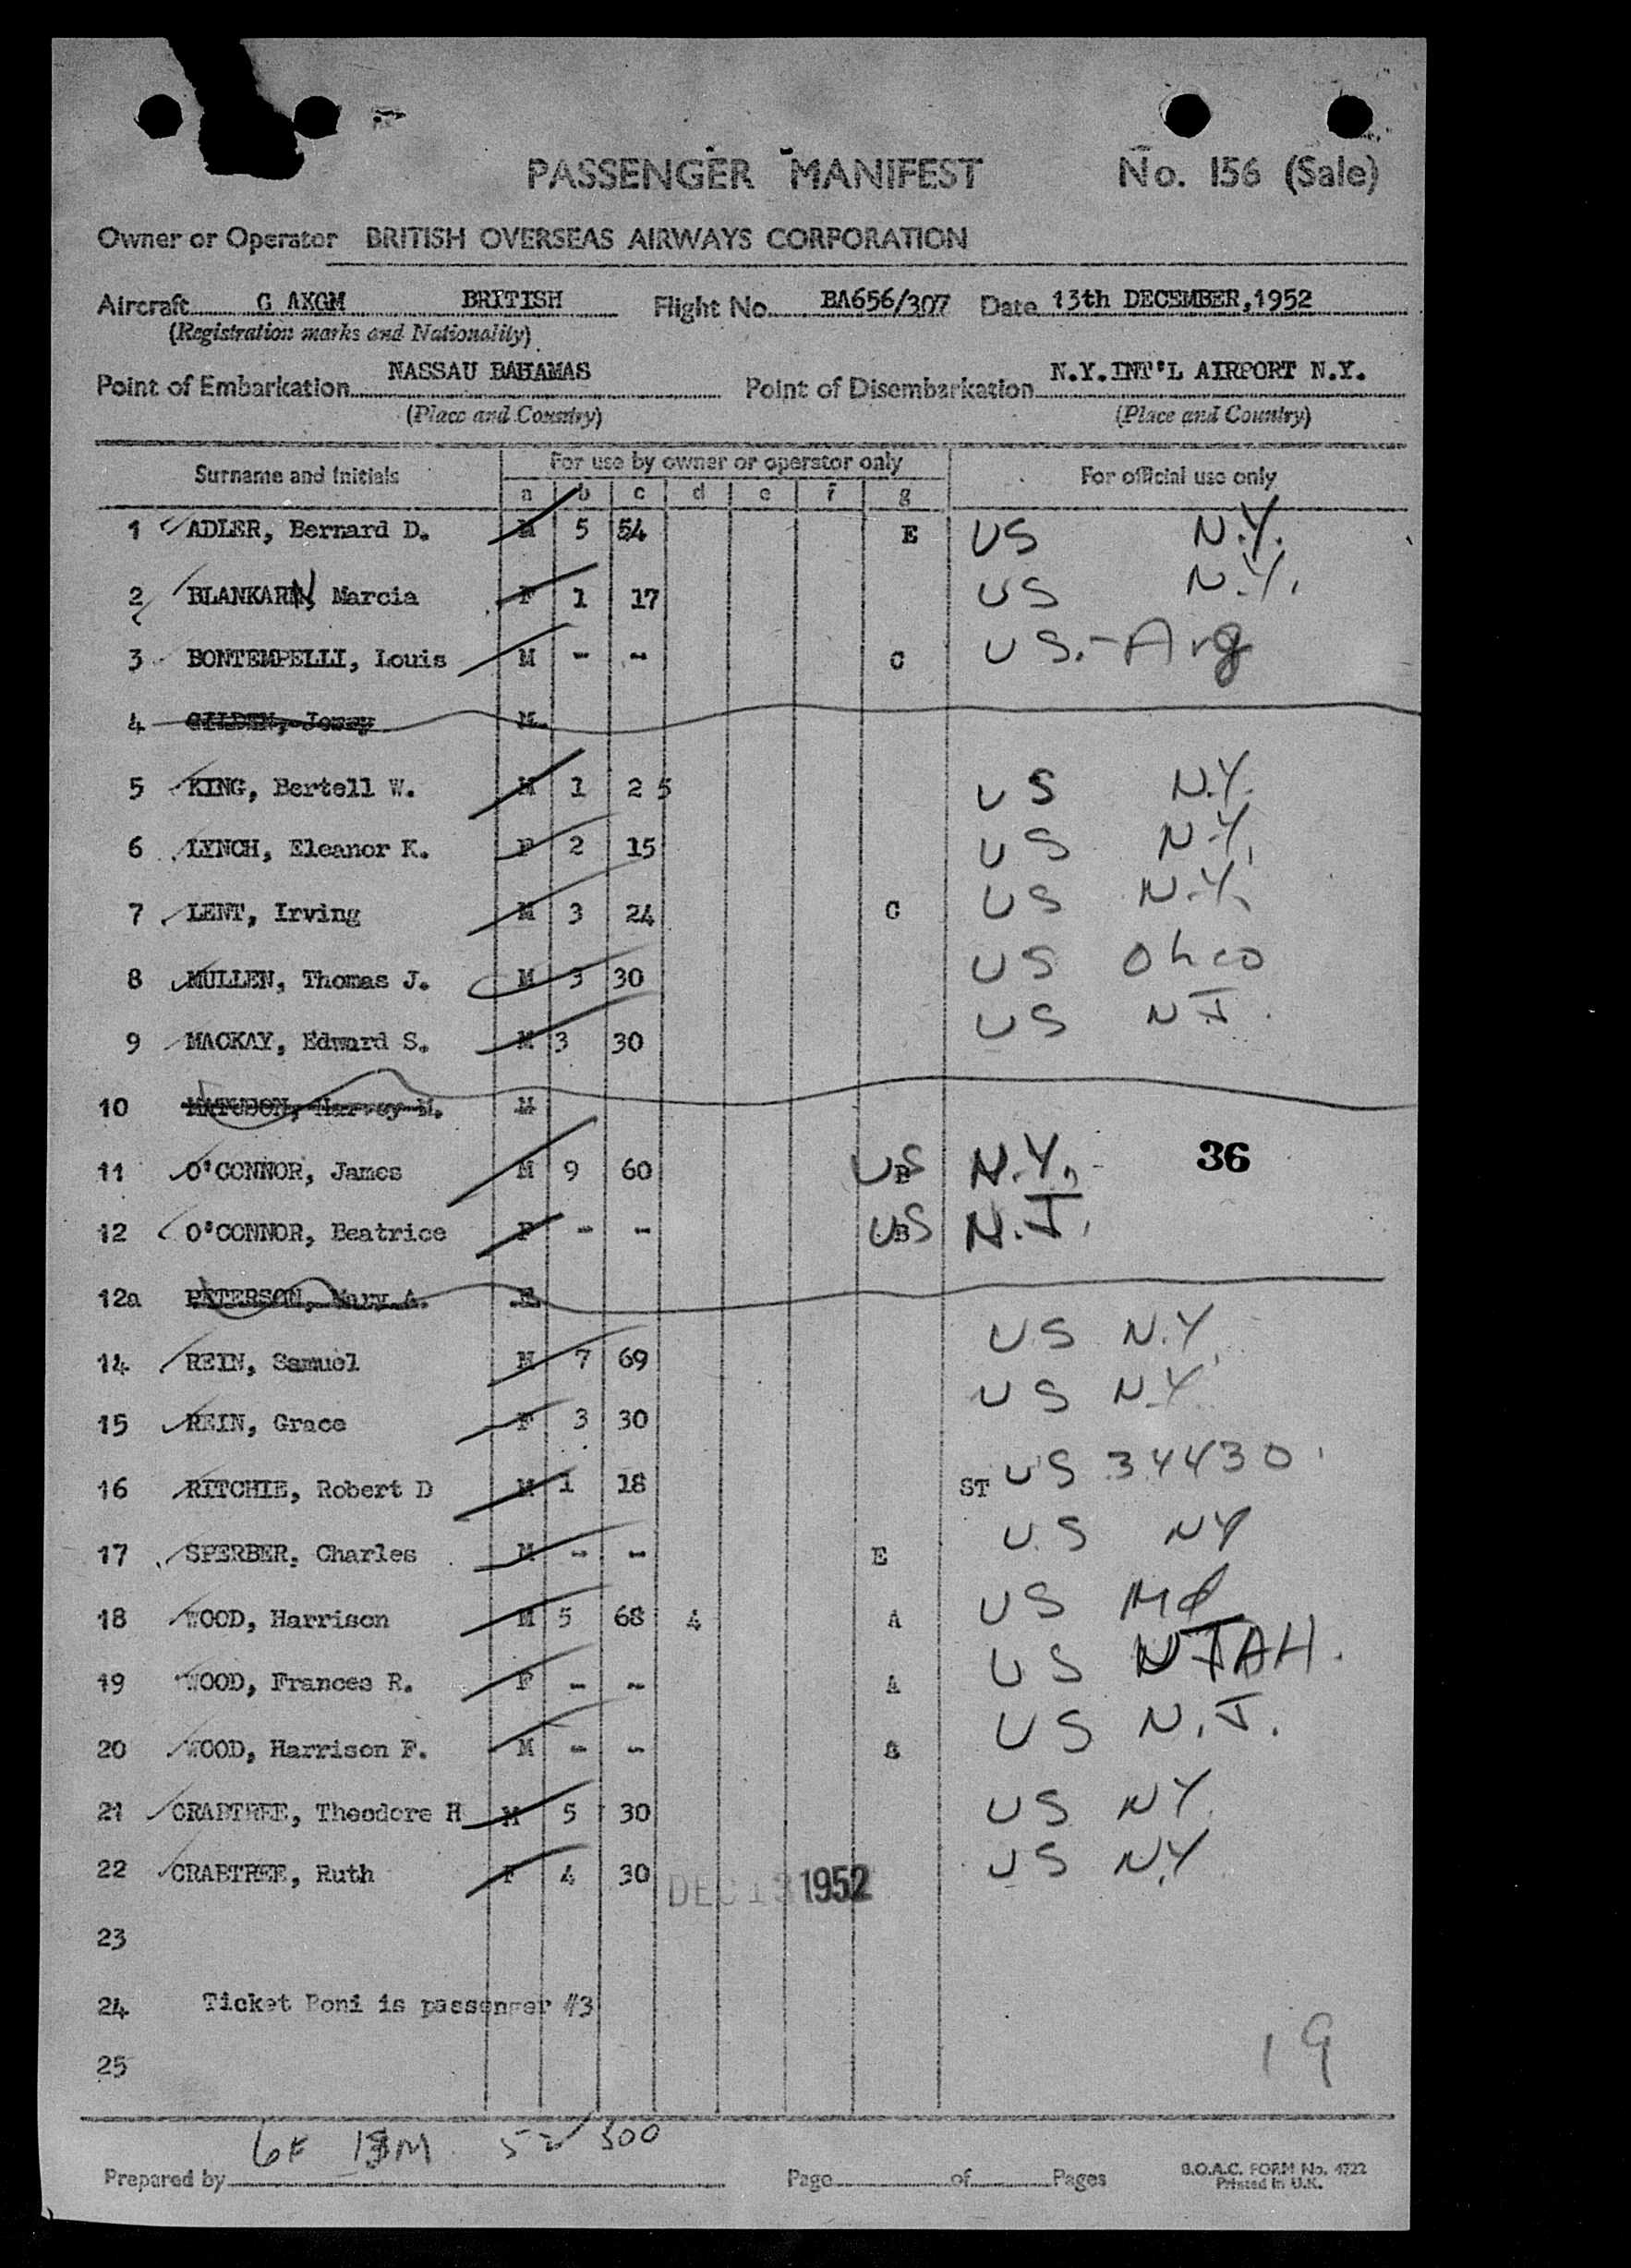 PASSENGER MANIFEST No. 156 (Sale)
Owner or Operator BRITISH OVERSEAS AIRWAYS CORPORATION
Aircraft G AKGM BRITISH Flight No. BA656/307 Date 13th DECEMBER,1952
(Registration marks and Nationality)
NASSAU BAHAMAS N.Y.INT'L AIRPORT N.Y.
Point of Embarkation Point of Disembarkation
(Place and Country) (Place and Country)
Surname and Initials For use by owner or operator only For official use only
a b c d e f g
1 ADLER, Bernard D. M 5 54 E US N.Y.
2 BLANKARN, Marcia F 1 17 US N.Y.
3 BONTEMPELLI, Louis M - - C US.-Arg
4 M
5 KING, Bertell W. M 1 2 5 US N.Y.
6 LYNCH, Eleanor K. F 2 15 US N.Y.
7 LENT, Irving M 3 24 C US N.Y.
8 MULLEN, Thomas J. M 3 30 US Ohio
9 MACKAY, Edward S. M 3 30 US NJ.
10 M
11 O'CONNOR, James M 9 60 US N.Y. 36
12 O'CONNOR, Beatrice F - - US N.J.
12a PETERSON, Mary A. F
14 REIN, Samuel M 7 69 US N.Y.
15 REIN, Grace F 3 30 US N.Y.
16 RITCHIE, Robert D M 1 18 ST US 34430
17 SPERBER, Charles M - - E US NY
18 WOOD, Harrison M 5 68 4 A US Md
19 WOOD, Frances R. F - - A US UTAH.
20 WOOD, Harrison F. M - - US N.J.
21 CRABTREE, Theodore H M 5 30 US NY.
22 CRABTREE, Ruth F 4 30 US N.Y.
DEC 13 1952
23
24 Ticket Boni is passenger #3
25
19
6F 13M 52/300
Prepared by Page of Pages
B.O.A.C. FORM No. 4722
Printed in U.K.